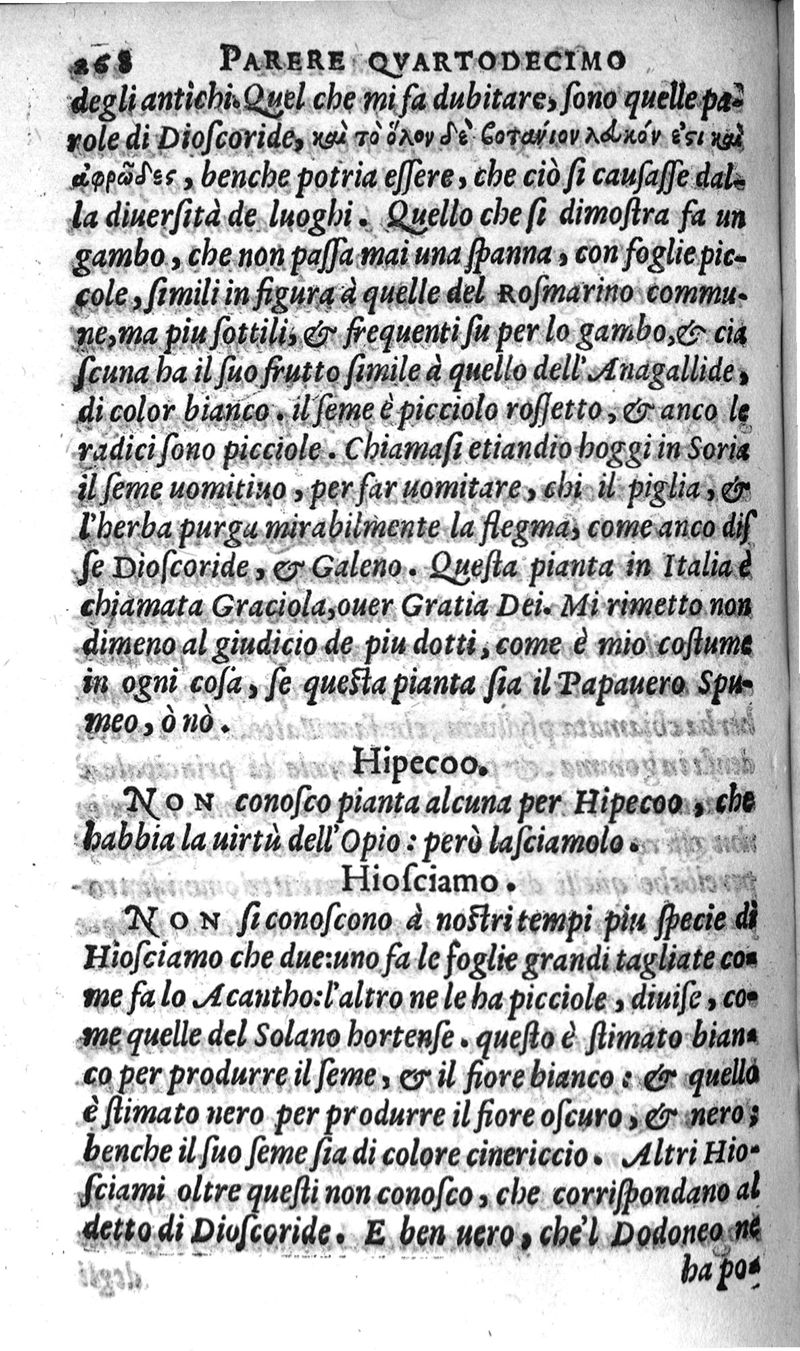 268 PARERE QVARTODECIMO
degli antichi. Quel che mi fa dubitare, ſono quelle pa-
role di Dioſcoride, καὶ τὸ ὅλον δὲ βοτανίον λδκόν ἐϛι καὶ
ἀφρῶδες, benche potria eſſere, che ciò ſi cauſaſſe dal-
la diuerſità de luoghi. Quello che ſi dimoſtra fa un
gambo, che non paſſa mai una ſpanna, con foglie pic-
cole, ſimili in figura à quelle del Roſmarino commu-
ne, ma piu ſottili, & frequenti ſu per lo gambo, & cia
ſcuna ha il ſuo frutto ſimile à quello dell'Anagallide,
di color bianco. il ſeme è picciolo roſſetto, & anco le
radici ſono picciole. Chiamaſi etiandio hoggi in Soria
il ſeme uomitiuo, per far uomitare, chi il piglia, &
l'herba purga mirabilmente la flegma, come anco diſ
ſe Dioſcoride, & Galeno. Queſta pianta in Italia è
chiamata Graciola, ouer Gratia Dei. Mi rimetto non
dimeno al giudicio de piu dotti, come è mio coſtume
in ogni coſa, ſe queſta pianta ſia il Papauero Spu-
meo, ò nò.
Hipecoo.
NON conoſco pianta alcuna per Hipecoo, che
habbia la uirtù dell'Opio: però laſciamolo.
Hioſciamo.
NON ſi conoſcono à noſtri tempi piu ſpecie di
Hioſciamo che due: uno fa le foglie grandi tagliate co-
me fa lo Acantho: l'altro ne le ha picciole, diuiſe, co-
me quelle del Solano hortenſe. queſto è ſtimato bian-
co per produrre il ſeme, & il fiore bianco: & quello
è ſtimato nero per produrre il fiore oſcuro, & nero;
benche il ſuo ſeme ſia di colore cinericcio. Altri Hio-
ſciami oltre queſti non conoſco, che corriſpondano al
detto di Dioſcoride. E ben uero, che'l Dodoneo ne
ha po-